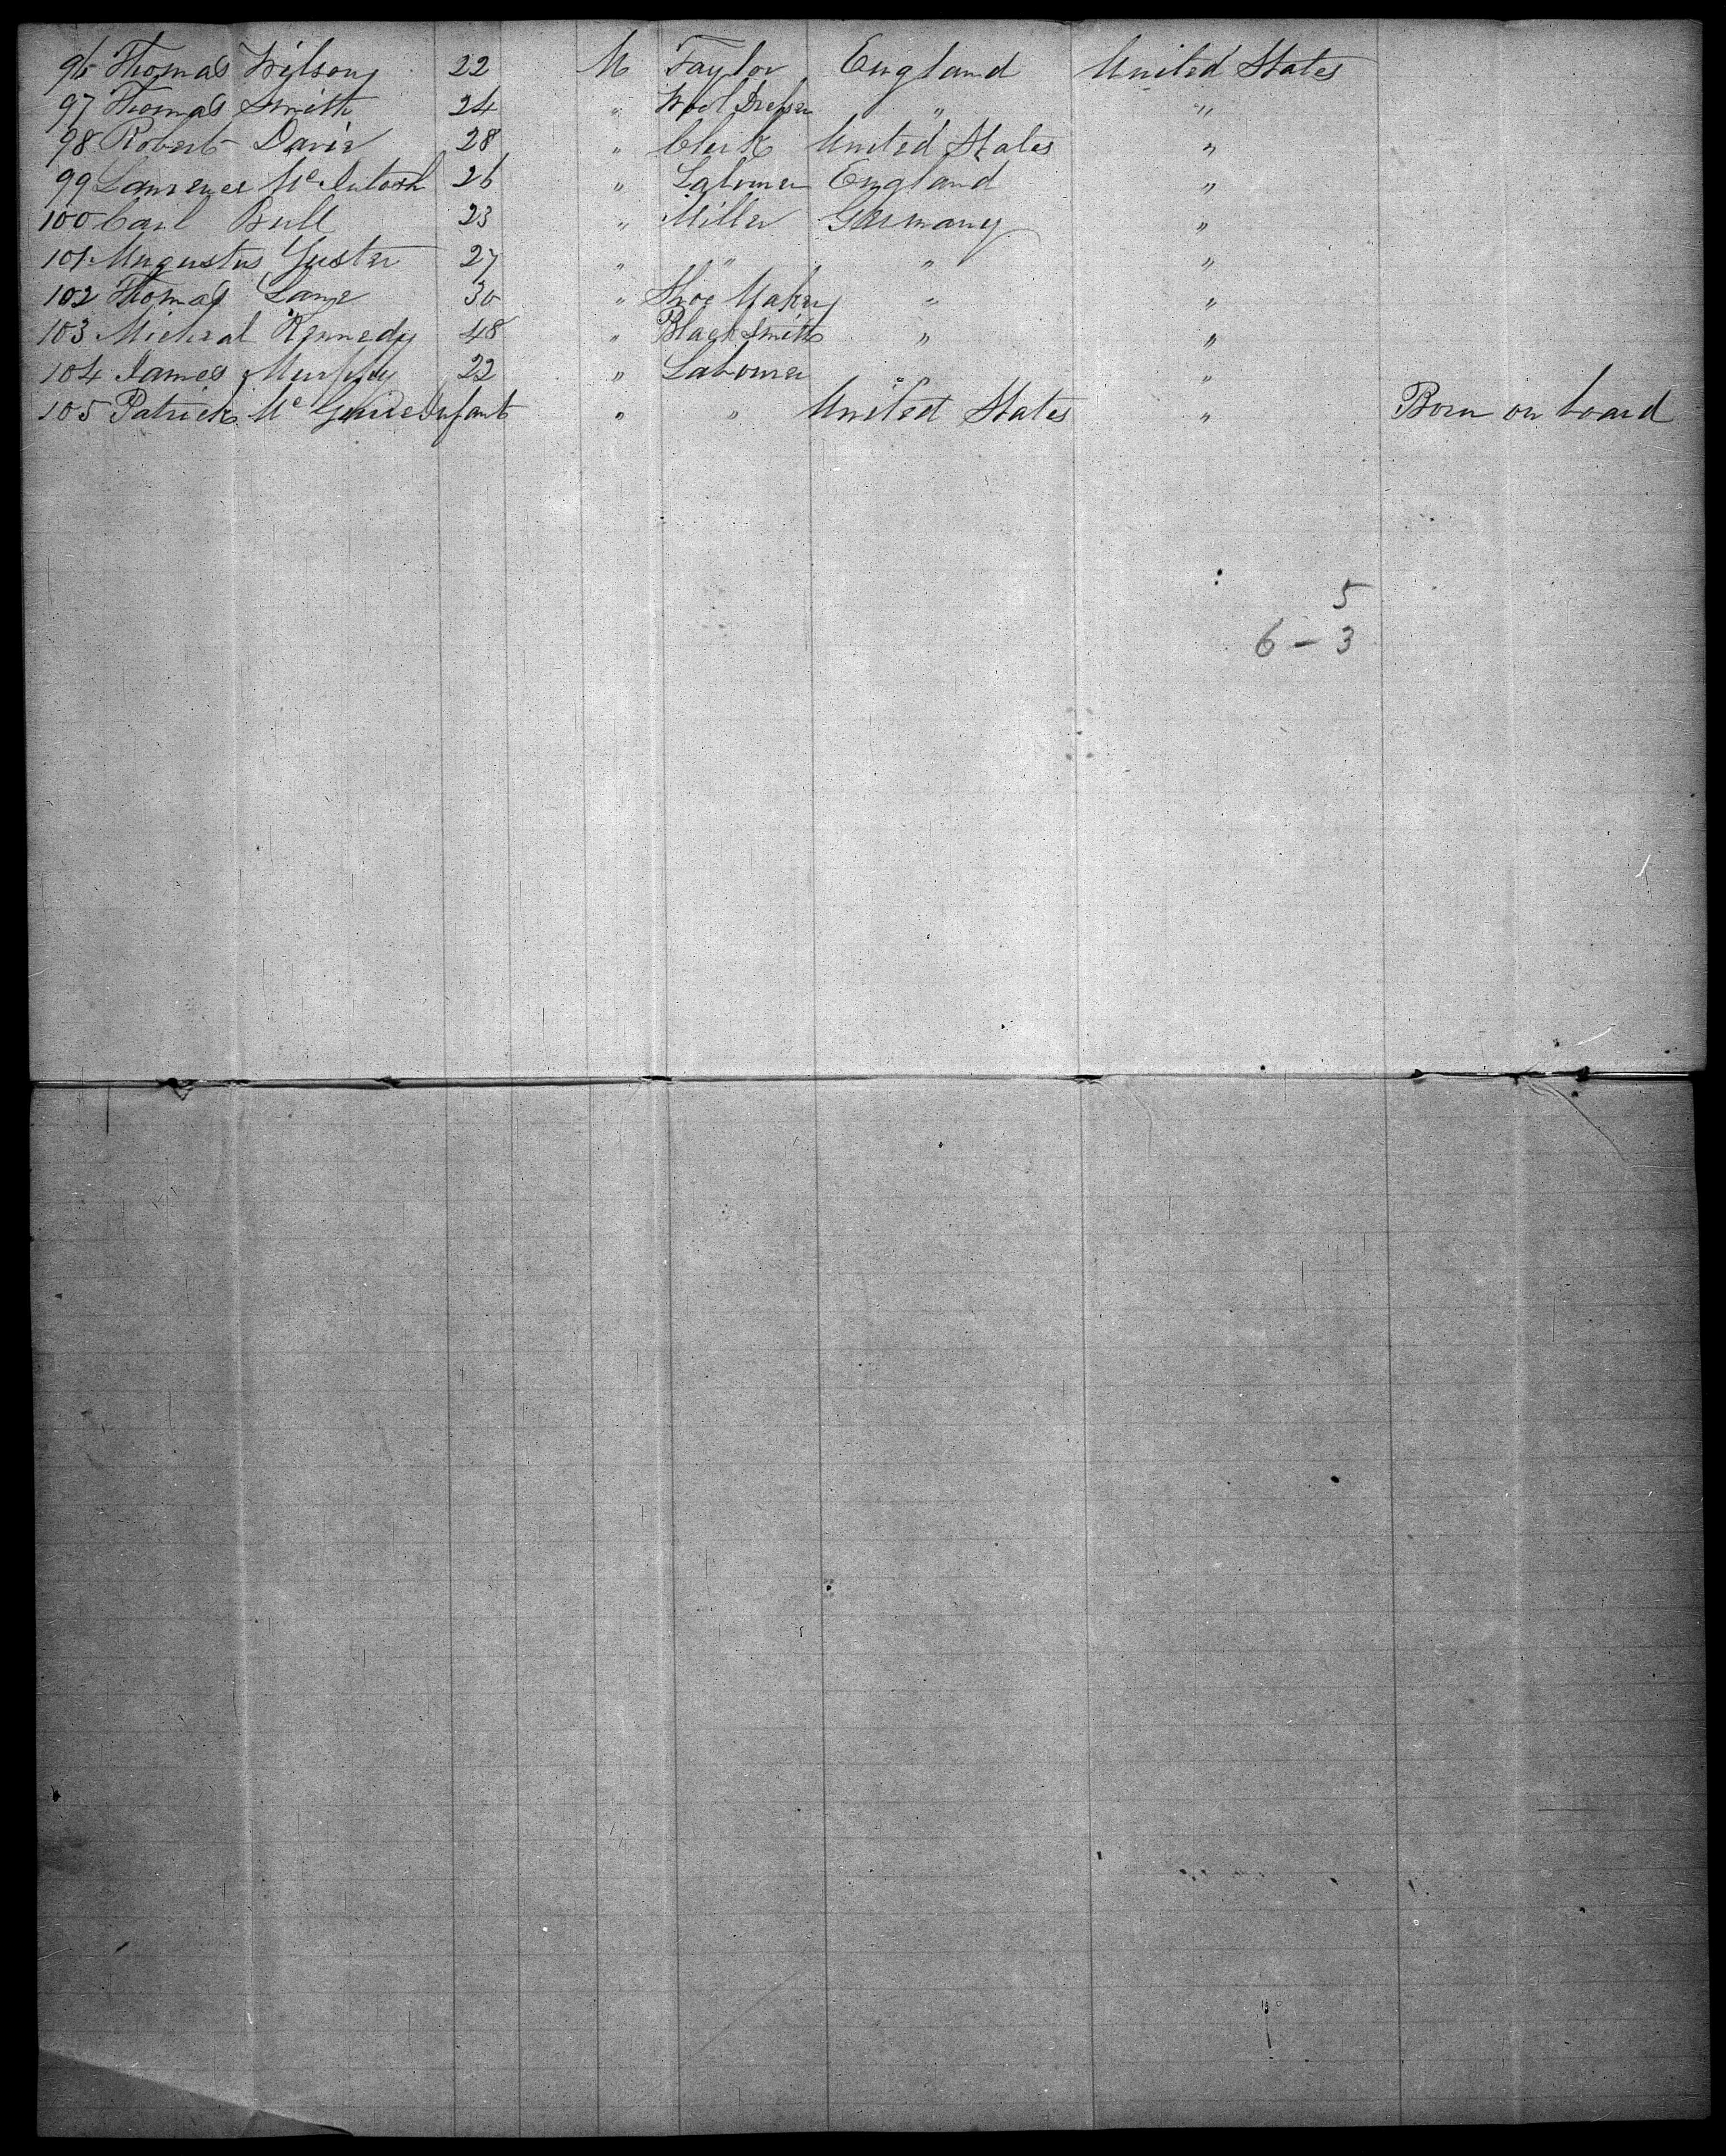 96 Thomas Wilson 22 M Taylor England United States
97 Thomas Smith 24 " Wool Dresser " "
98 Robert Davis 28 " Clerk United States "
99 Lawrence Mc Intosh 26 " Labourer England "
100 Carl Bull 23 " Miller Germany "
101 Augustus Yuster 27 " " " "
102 Thomas Lane 30 " Shoe Maker " "
103 Micheal Kennedy 48 " Black Smith " "
104 James Murphy 22 " Labourer " "
105 Patrick Mc Guire Infant " " United States " Born on board
5
6 - 3